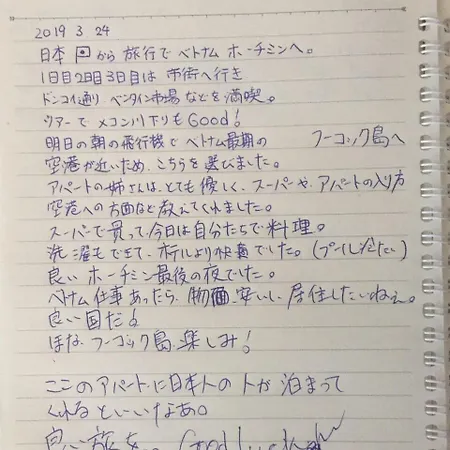 2019 3. 24
日本 から 旅行で ベトナム ホーチミンへ。
1日目2日目3日目は 市街へ行き
ドンコイ通り ベンタイン市場 などを 満喫。
ツアーで メコン川下りも Good!
明日の朝の飛行機で ベトナム最期の フーコック島へ
空港が近いため、こちらを選びました。
アパートの姉さんは、とても優しく、スーパーや、アパートの入り方
空港への方面など教えてくれました。
スーパーで買って、今日は自分たちで料理。
洗濯もできて、ホテルより快適でした。(プールも冷たい)
良い ホーチミン最後の夜でした。
ベトナム仕事あったら、物価安いし、居住したいねぇ。
良い国だな!
ほな、フーコック島、楽しみ!
ここのアパートに日本人の 人が泊まって
くれるといいなあ。
良い旅を。 Good luck